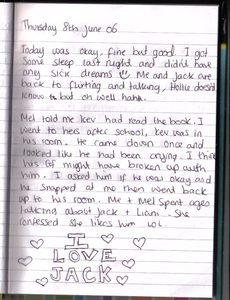 Thursday 8th June 06
Today was okay, fine but good! I got
some sleep last night and didn't have
any sick dreams Me and Jack are
back to flirting and talking, Hollie doesn't
know but oh well haha.
Mel told me Kev had read the book. I
went to hers after school, Kev was in
his room. He came down once and
looked like he had been crying. I think
his GF might have broken up with
him. I asked him if he was okay and
he snapped at me then went back
up to his room. Me + Mel spent ages
talking about Jack + Liam. She
confessed she likes him lol
I
LOVE
JACK